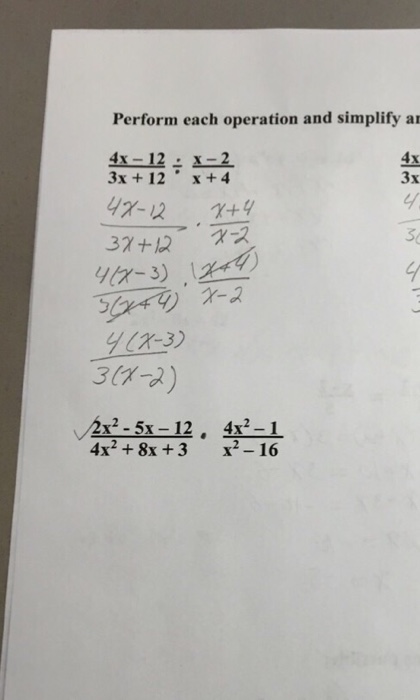 Perform each operation and simplify a
4x – 12 ÷ x – 2
3x + 12 x + 4
4x-12 · x+4
3x+12 x-2
4(x-3) · 1(x+4)
3(x+4) x-2
4(x-3)
3(x-2)
√2x² - 5x – 12 • 4x² – 1
4x² + 8x + 3 x² – 16
4x
3x
4
3
4
3